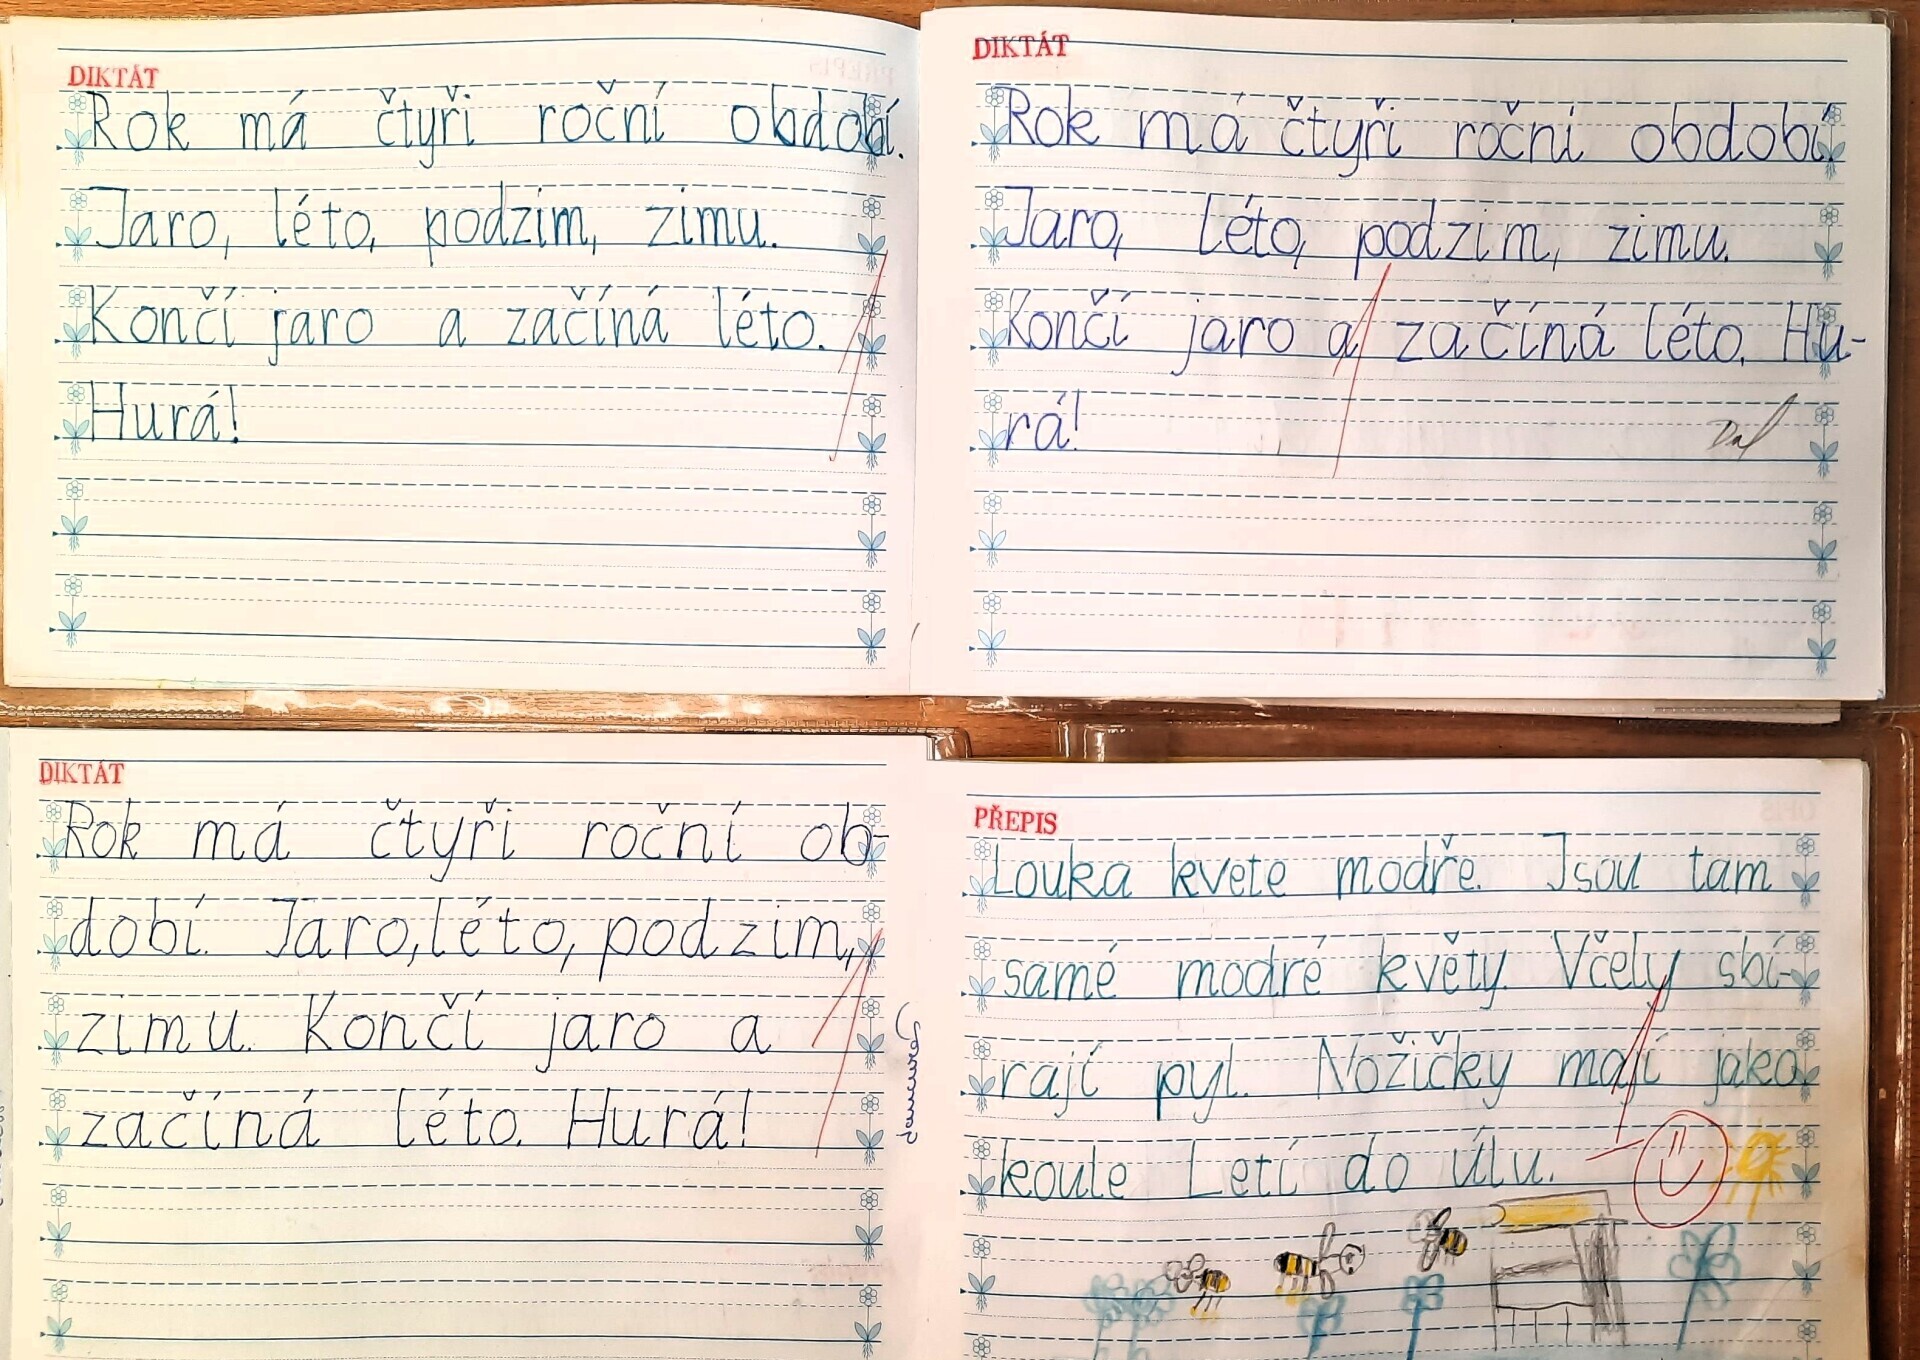 DIKTÁT
Rok má čtyři roční období.
Jaro, léto, podzim, zimu.
Končí jaro a začíná léto.
Hurá!
DIKTÁT
Rok má čtyři ročni období.
Jaro, léto, podzim, zimu.
Končí jaro a začíná léto. Hu-
rá!
DIKTÁT
Rok má čtyři roční ob-
dobí. Jaro, léto, podzim,
zimu. Končí jaro a
začíná léto. Hurá!
PŘEPIS
Louka kvete modře. Jsou tam
samé modré květy. Včely sbí-
rají pyl. Nožičky mají jako
koule Letí do úlu.